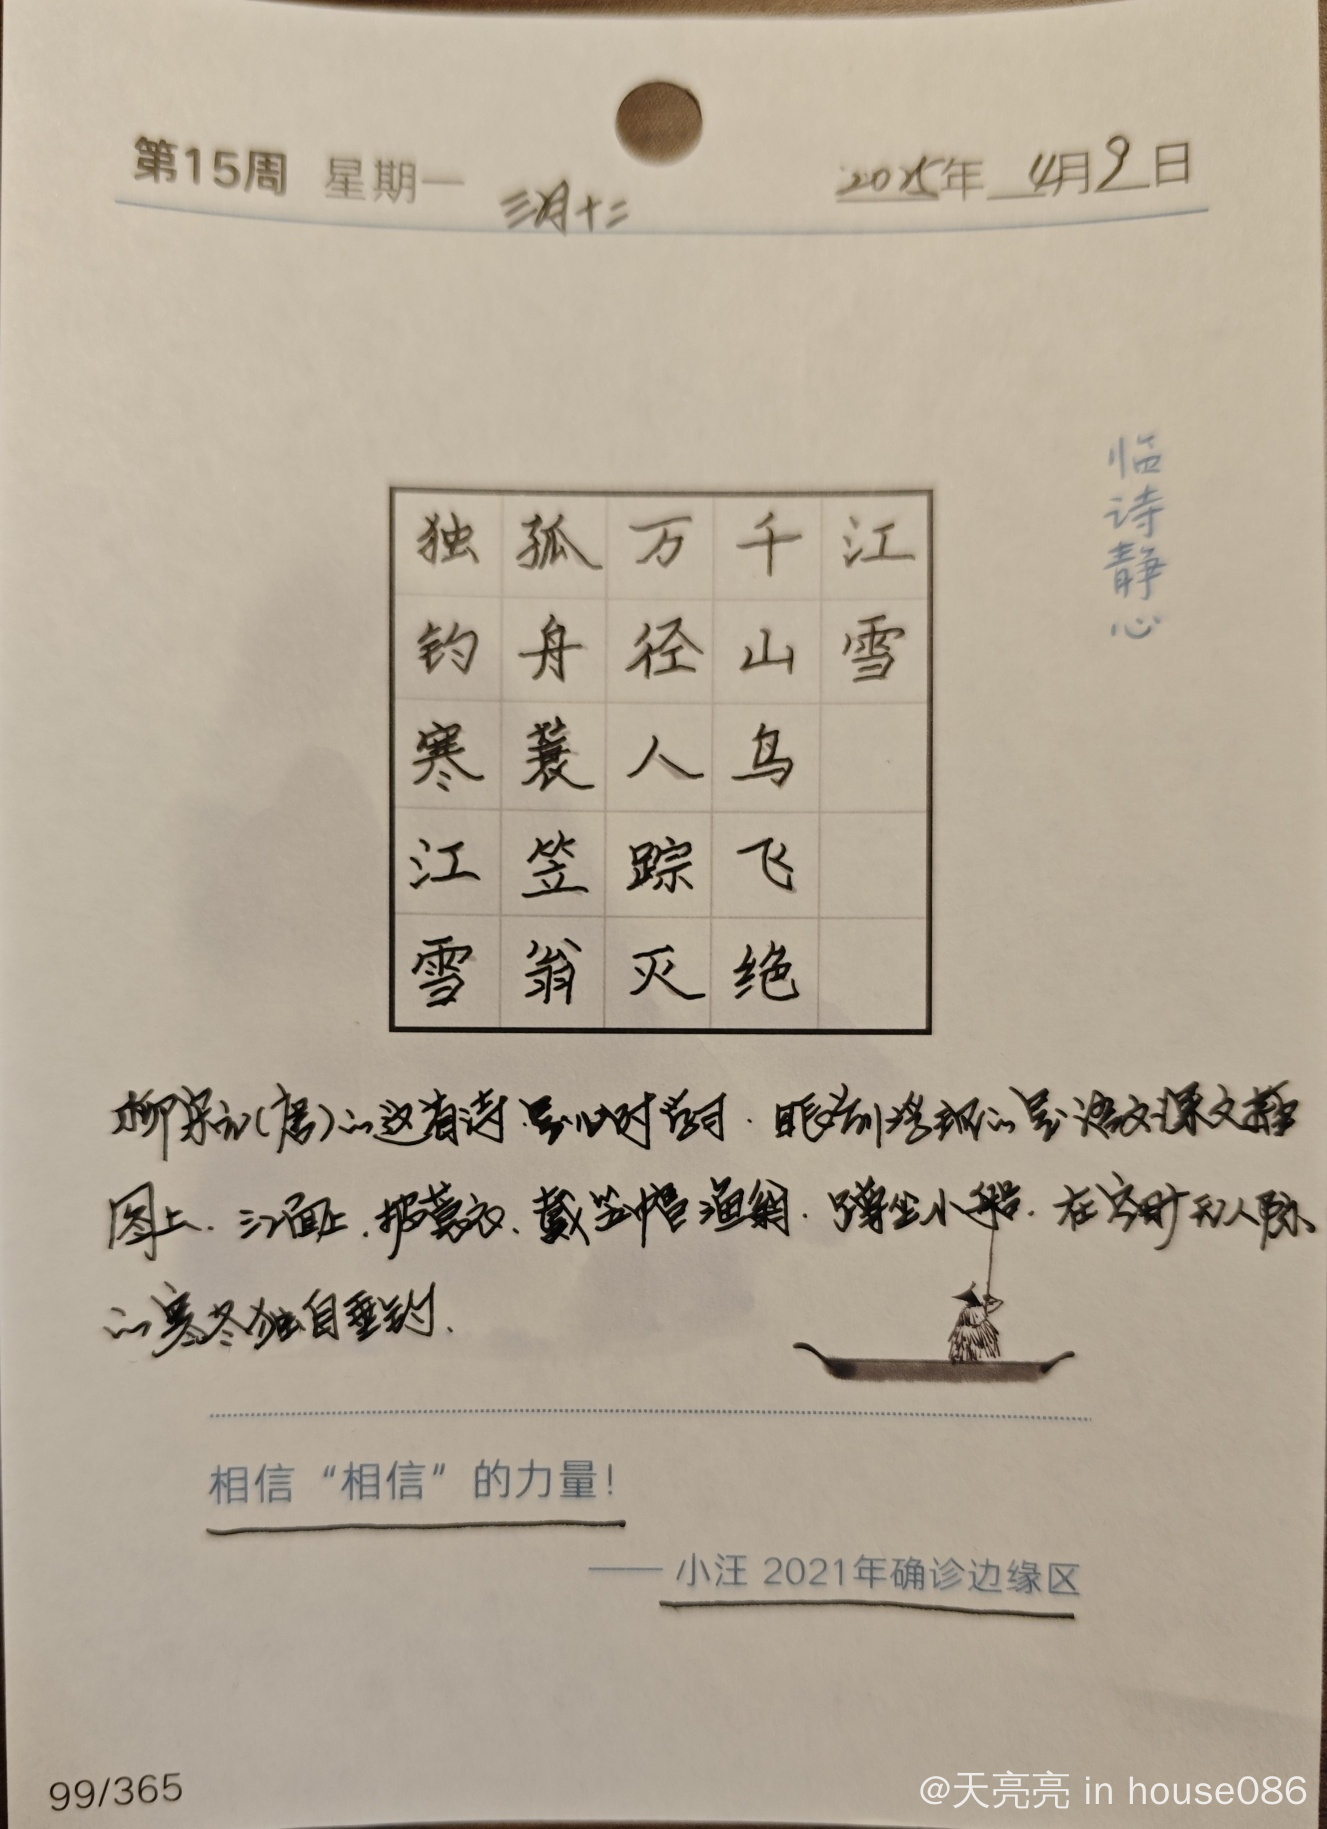 第15周 星期一 三月十二 2025年 4月9日
临诗静心
江雪
千山鸟飞绝
万径人踪灭
孤舟蓑笠翁
独钓寒江雪
柳宗元(唐)的这首诗.是儿时背. 的是语文课文插
图上. 江面上.披蓑衣.戴笠帽渔翁. 坐小船. 在空旷无人
的寒冬独自垂钓.
相信“相信”的力量!
—— 小汪 2021年确诊边缘区
99/365
@天亮亮 in house086